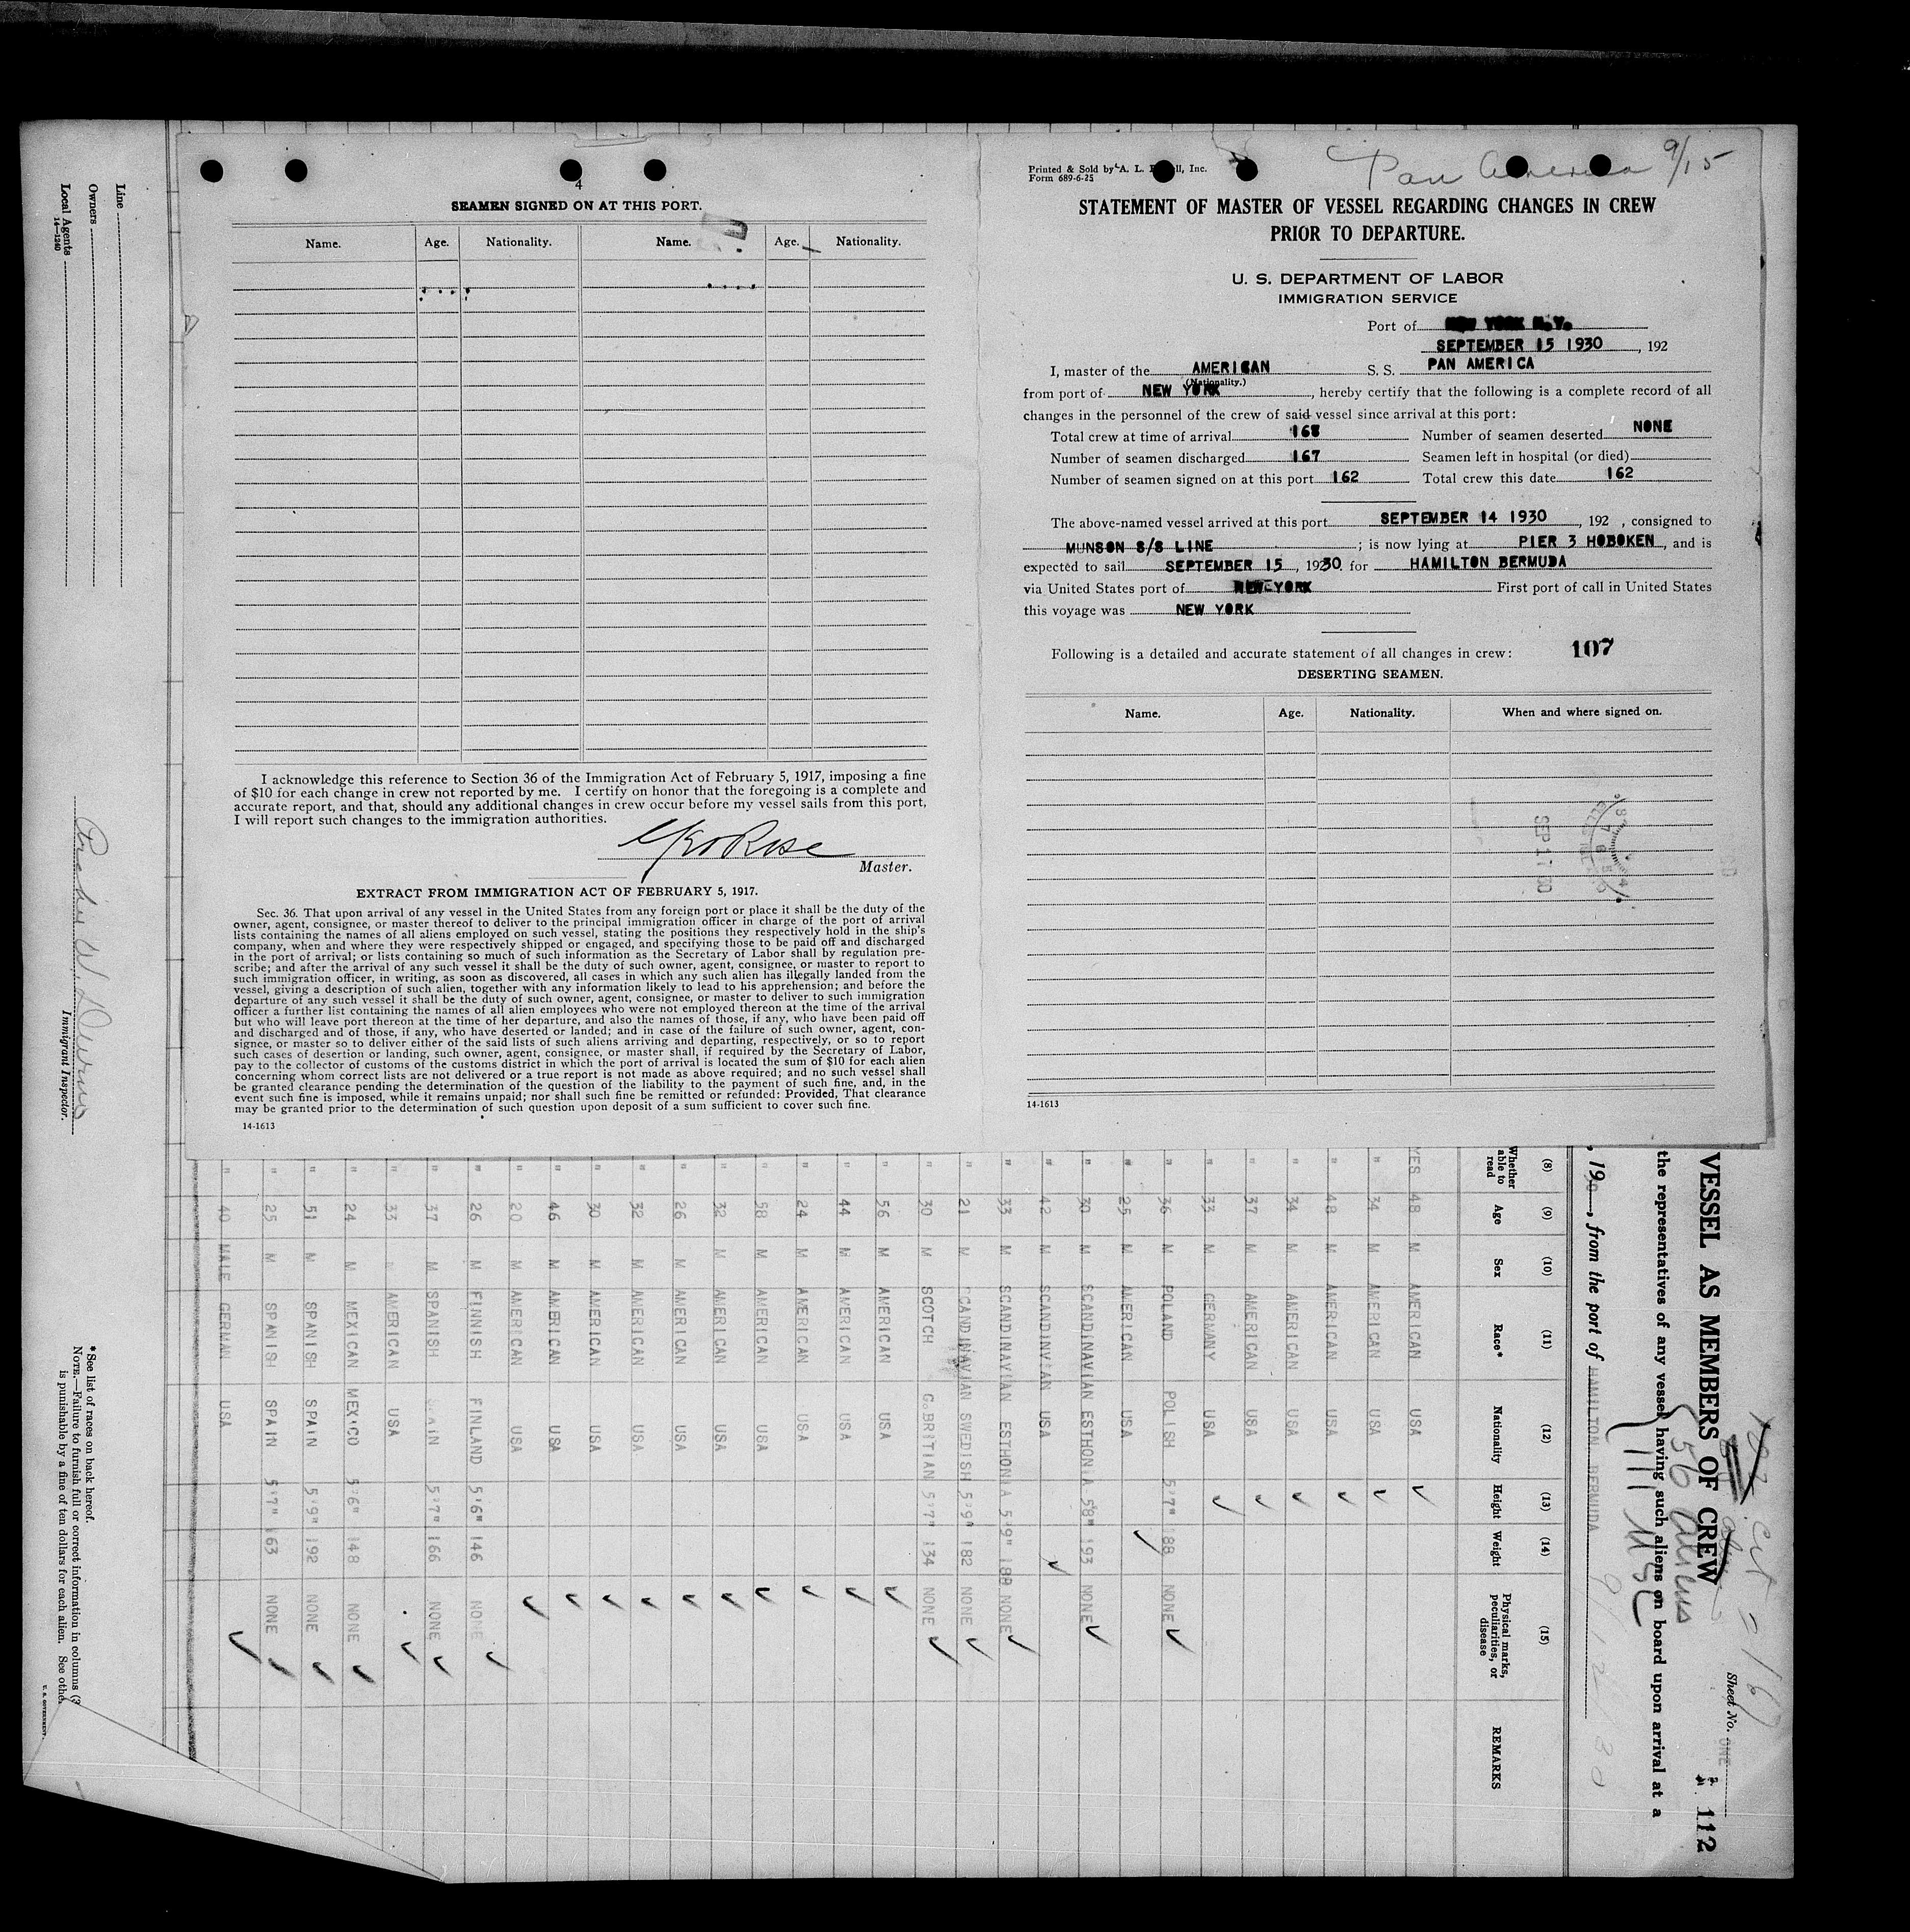 4
SEAMEN SIGNED ON AT THIS PORT.
Name. Age. Nationality. Name. Age. Nationality.
I acknowledge this reference to Section 36 of the Immigration Act of February 5, 1917, imposing a fine
of $10 for each change in crew not reported by me. I certify on honor that the foregoing is a complete and
accurate report, and that, should any additional changes in crew occur before my vessel sails from this port,
I will report such changes to the immigration authorities.
Geo Rose
Master.
EXTRACT FROM IMMIGRATION ACT OF FEBRUARY 5, 1917.
Sec. 36. That upon arrival of any vessel in the United States from any foreign port or place it shall be the duty of the
owner, agent, consignee, or master thereof to deliver to the principal immigration officer in charge of the port of arrival
lists containing the names of all aliens employed on such vessel, stating the positions they respectively hold in the ship's
company, when and where they were respectively shipped or engaged, and specifying those to be paid off and discharged
in the port of arrival; or lists containing so much of such information as the Secretary of Labor shall by regulation pre-
scribe; and after the arrival of any such vessel it shall be the duty of such owner, agent, consignee, or master to report to
such immigration officer, in writing, as soon as discovered, all cases in which any such alien has illegally landed from the
vessel, giving a description of such alien, together with any information likely to lead to his apprehension; and before the
departure of any such vessel it shall be the duty of such owner, agent, consignee, or master to deliver to such immigration
officer a further list containing the names of all alien employees who were not employed thereon at the time of the arrival
but who will leave port thereon at the time of her departure, and also the names of those, if any, who have been paid off
and discharged and of those, if any, who have deserted or landed; and in case of the failure of such owner, agent, con-
signee, or master so to deliver either of the said lists of such aliens arriving and departing, respectively, or so to report
such cases of desertion or landing, such owner, agent, consignee, or master shall, if required by the Secretary of Labor,
pay to the collector of customs of the customs district in which the port of arrival is located the sum of $10 for each alien
concerning whom correct lists are not delivered or a true report is not made as above required; and no such vessel shall
be granted clearance pending the determination of the question of the liability to the payment of such fine, and, in the
event such fine is imposed, while it remains unpaid; nor shall such fine be remitted or refunded: Provided, That clearance
may be granted prior to the determination of such question upon deposit of a sum sufficient to cover such fine.
14-1613
Printed & Sold by A. L. ll, Inc.
Form 689-6-25
Pan America 9/15
STATEMENT OF MASTER OF VESSEL REGARDING CHANGES IN CREW
PRIOR TO DEPARTURE.
U. S. DEPARTMENT OF LABOR
IMMIGRATION SERVICE
Port of NEW YORK N.Y.
SEPTEMBER 15 1930, 192
I, master of the AMERICAN S. S. PAN AMERICA
(Nationality.)
from port of NEW YORK, hereby certify that the following is a complete record of all
changes in the personnel of the crew of said vessel since arrival at this port:
Total crew at time of arrival 168 Number of seamen deserted NONE
Number of seamen discharged 167 Seamen left in hospital (or died)
Number of seamen signed on at this port 162 Total crew this date 162
The above-named vessel arrived at this port SEPTEMBER 14 1930, 192 , consigned to
MUNSON S/S LINE; is now lying at PIER 3 HOBOKEN, and is
expected to sail SEPTEMBER 15, 1930. for HAMILTON BERMUDA
via United States port of NEW YORK First port of call in United States
this voyage was NEW YORK
Following is a detailed and accurate statement of all changes in crew: 107
DESERTING SEAMEN.
Name. Age. Nationality. When and where signed on.
SEP 17 30
14-1613
Sheet No. ONE
112
VESSEL AS MEMBERS OF CREW
56 aliens
111 USC
the representatives of any vessel having such aliens on board upon arrival at a
, 19 , from the port of HAMILTON BERMUDA 9/12/30
(8) (9) (10) (11) (12) (13) (14) (15)
Whether able to read Age Sex Race* Nationality Height Weight Physical marks, peculiarities, or disease REMARKS
YES 48 M AMERICAN USA
" 34 M AMERICAN USA
" 48 M AMERICAN USA
" 34 M AMERICAN USA
" 37 M AMERICAN USA
" 33 M GERMANY USA
" 36 M POLAND POLISH 5'7" 188 NONE
" 25 M AMERICAN USA
" 30 M SCANDINAVIAN ESTHONIA 5'8" 193 NONE
" 42 M SCANDINVIAN USA
" 33 M SCANDINAVIAN ESTHONIA 5'9" 188 NONE
" 21 M SCANDINAVIAN SWEDISH 5'9" 182 NONE
" 30 M SCOTCH G.BRITIAN 5'7" 134 NONE
" 56 M AMERICAN USA
" 44 M AMERICAN USA
" 24 M AMERICAN USA
" 58 M AMERICAN USA
" 32 M AMERICAN USA
" 26 M AMERICAN USA
" 32 M AMERICAN USA
" 30 M AMERICAN USA
" 46 M AMERICAN USA
" 20 M AMERICAN USA
" 26 M FINNISH FINLAND 5'6" 146 NONE
" 37 M SPANISH SPAIN 5'7" 166 NONE
" 33 M AMERICAN USA
" 24 M MEXICAN MEXICO 5'6" 148 NONE
" 51 M SPANISH SPAIN 5'9" 192 NONE
" 25 M SPANISH SPAIN 5'7" 163 NONE
" 40 MALE GERMAN USA
Line
Owners
Local Agents
14-1240
Immigrant Inspector.
* See list of races on back hereof.
NOTE.—Failure to furnish full or correct information in columns (3
is punishable by a fine of ten dollars for each alien. See othe
U. S. GOVERNMENT